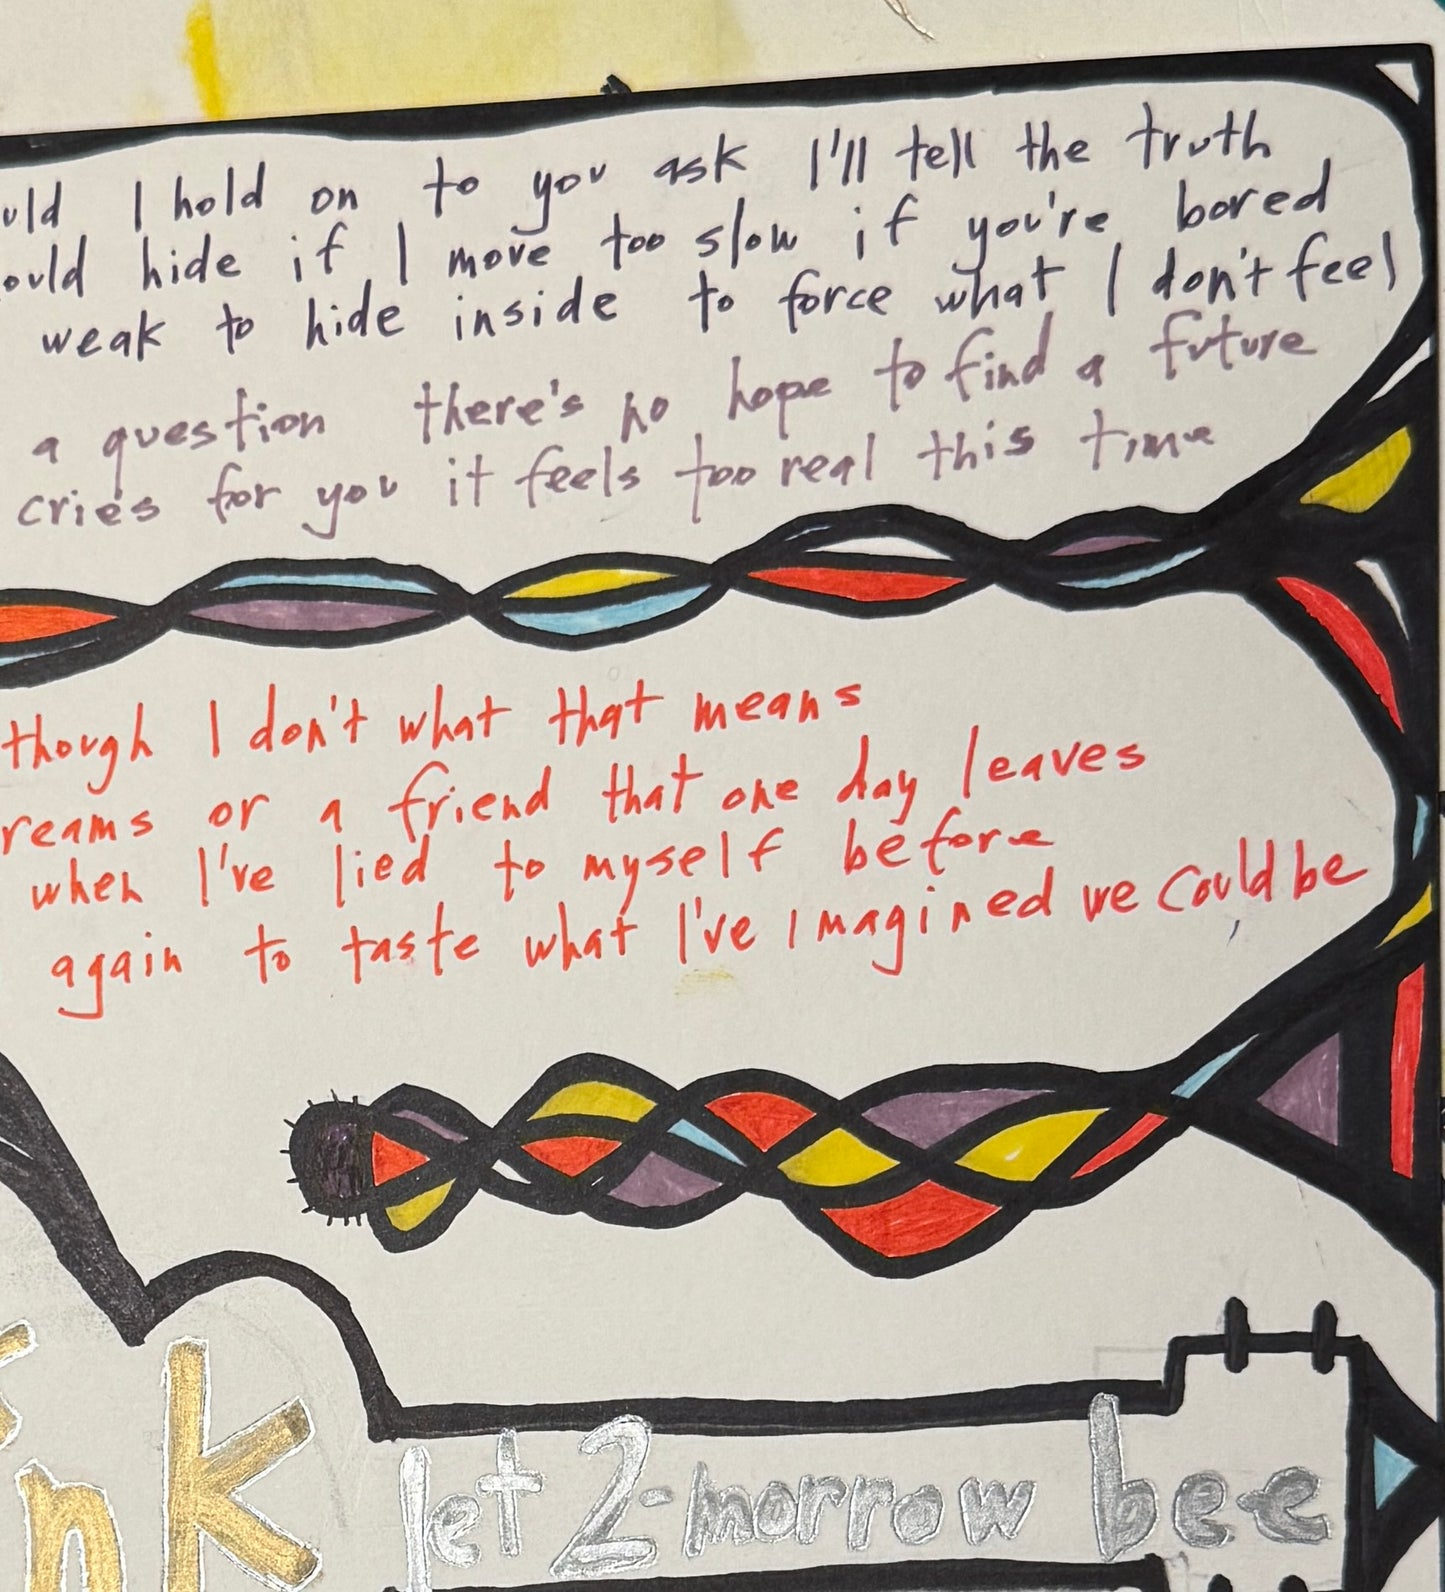 uld I hold on to you ask I'll tell the truth
ould hide if I move too slow if you're bored
weak to hide inside to force what I don't feel
a question there's no hope to find a future
cries for you it feels too real this time
though I don't what that means
reams or a friend that one day leaves
when I've lied to myself before
again to taste what I've imagined we could be
nk
let 2-morrow bee